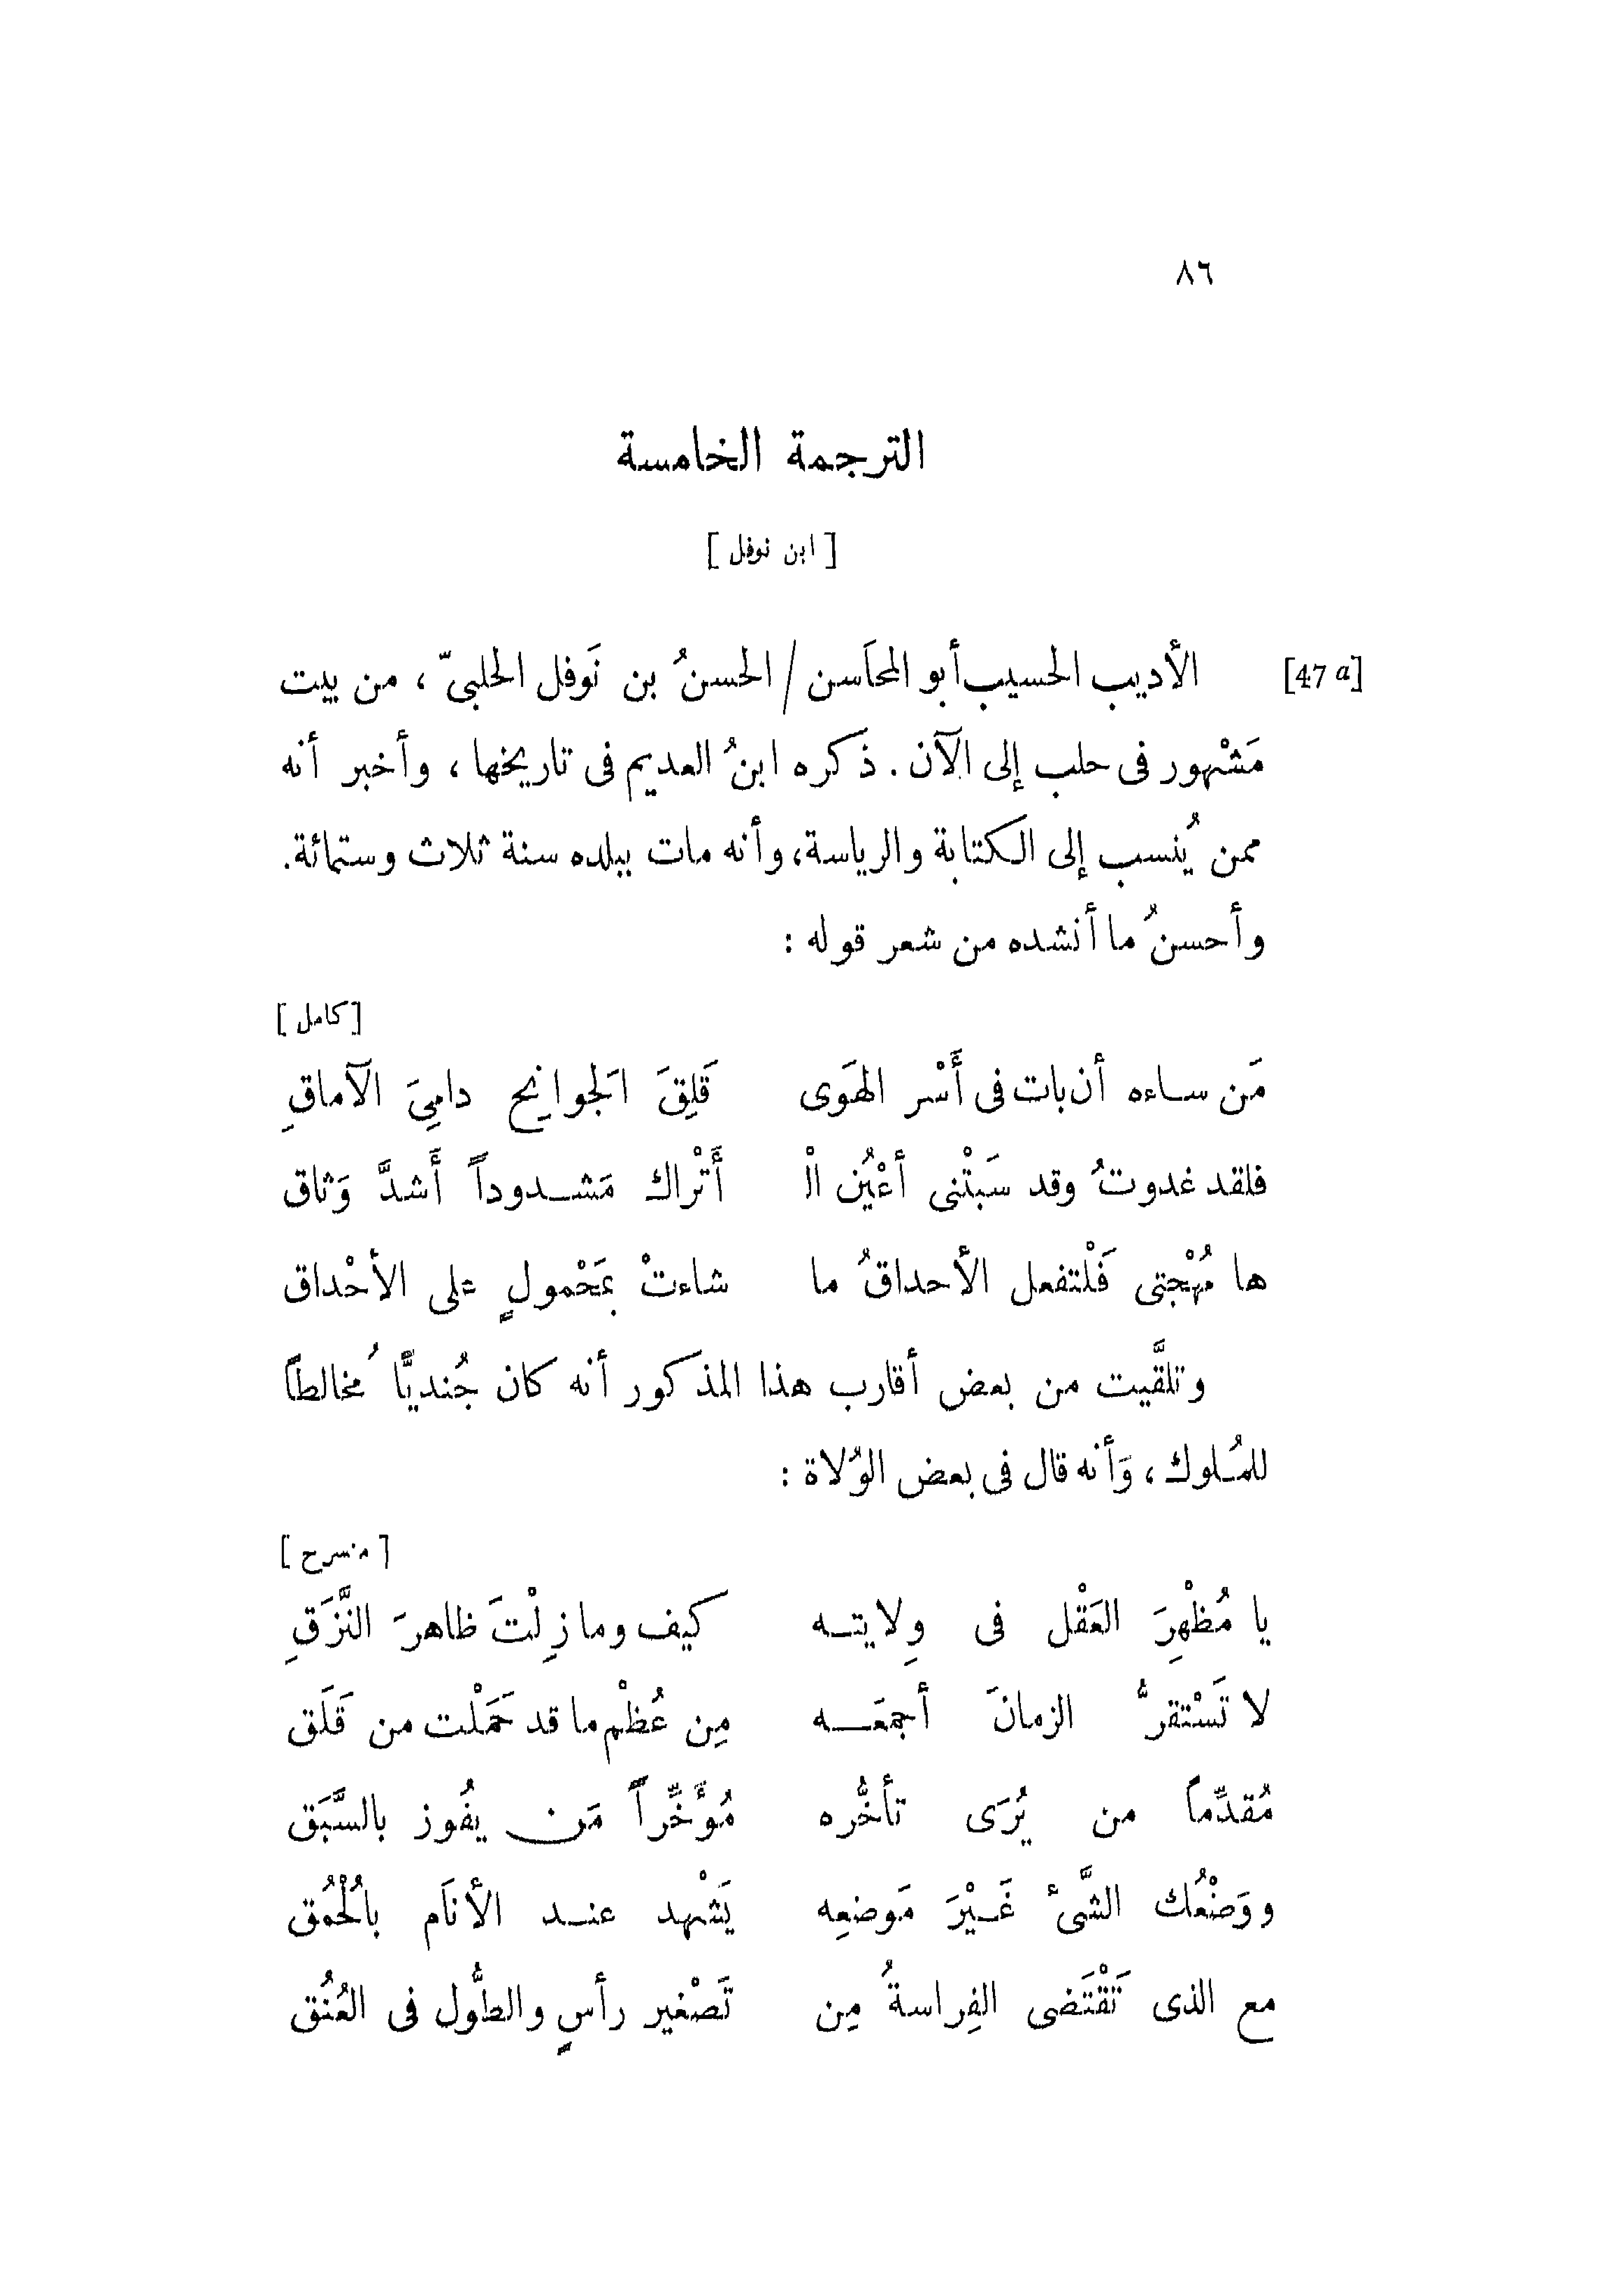 ٨٦
الترجمة الخامسة
[ ابن نوفل ]
[47 a] الأديب الحسيب أبو المحاَسن / الحسنُ بن نَوفل الحلبىّ ، من بيت
مَشْهور فى حلب إلى الآن . ذكره ابنُ العديم فى تاريخها ، وأخبر أنه
ممن يُنسب إلى الكتابة والرياسة، وأنه مات ببلده سنة ثلاث وستمائة.
وأحسنُ ما أنشده من شعر قوله :
[كامل ]
مَن ساءه أن بات فى أَسْر الهَوى قَلِقَ الَجوانِح دامِىَ الآماقِ
فلقد غدوتُ وقد سَبَتْنى أعْيُن الْ أَتْراك مَشدوداً أَشدَّ وَثاق
ها مُهْجتى فَلْتفعل الأحداقُ ما شاءتْ بمَحْمولٍ على الأحْداق
وتلقَّيت من بعض أقارب هذا المذكور أنه كان جُنديًّا مُخالطاً
للمُلوك ، وَأنه قال فى بعض الوُلاة :
[ منسرح ]
يا مُظْهِرَ العَقْل فى وِلايته كيف وما زِلْتَ ظاهرَ النَّزَقِ
لا تَسْتقرُّ الزمانَ أجمعَه مِن عُظْم ما قد حَمَلْت من قَلَق
مُقدِّماً من يُرَى تأخُّره مُؤَخِّراً مَن يفُوز بالسَّبَق
ووَضْعُك الشَّىْ غَيْرَ مَوضعِه يَشْهد عند الأنَام بالُحْمُق
مع الذى تَقْتَضى الفِراسةُ مِن تَصْغير رأسٍ والطُّول فى العُنُق